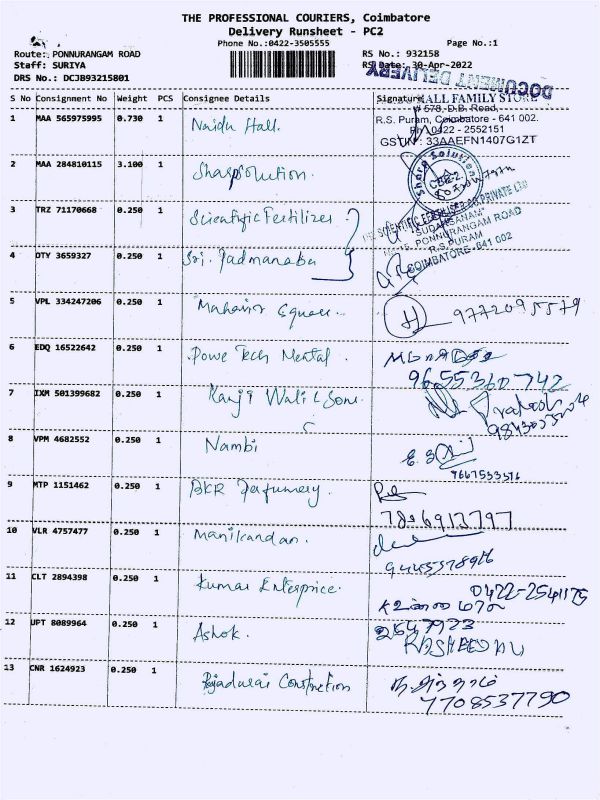 THE PROFESSIONAL COURIERS, Coimbatore
Delivery Runsheet - PC2
Phone No.:0422-3505555
Page No.:1
Route: PONNURANGAM ROAD
RS No.: 932158
Staff: SURIYA
RS Date: 30-Apr-2022
DRS No.: DCJB93215801
DOCUMENT DELIVERY
S No Consignment No Weight PCS Consignee Details Signature
HALL FAMILY STORE
# 578, D.B. Road,
R.S. Puram, Coimbatore - 641 002.
Ph: 0422 - 2552151
GSTIN : 33AAEFN1407G1ZT
1 MAA 565975995 0.730 1 Naidu Hall.
2 MAA 284810115 3.100 1 Sharpsolution.
CBE-2
3 TRZ 71170668 0.250 1 Scientific Fertilizer
PRIVATE LTD
"SUDARSANAM"
PONNURANGAM ROAD
R.S.PURAM
COIMBATORE-641 002
4 OTY 3659327 0.250 1 Sri. Padmanaba
5 VPL 334247206 0.250 1 Mahavir Square.
H
6 EDQ 16522642 0.250 1 Powe Tech Mental.
9655360742
7 IXM 501399682 0.250 1 Kanji Wali & Sons.
8 VPM 4682552 0.250 1 Nambi
9 MTP 1151462 0.250 1 BKR Perfumery.
7816913797
10 VLR 4757477 0.250 1 Manikandan.
11 CLT 2894398 0.250 1 Kumar Enterprice.
0422-2541175
12 UPT 8089964 0.250 1 Ashok.
2547923
RASHEED ALI
13 CNR 1624923 0.250 1 Rajadurai Construction
7708537790